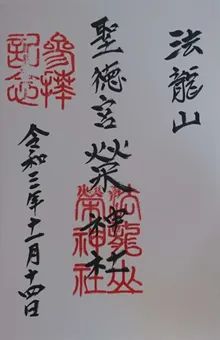 法龍山
聖徳宮 榮神社
法龍山
榮神社
參拝
記念
令和三年十一月十四日